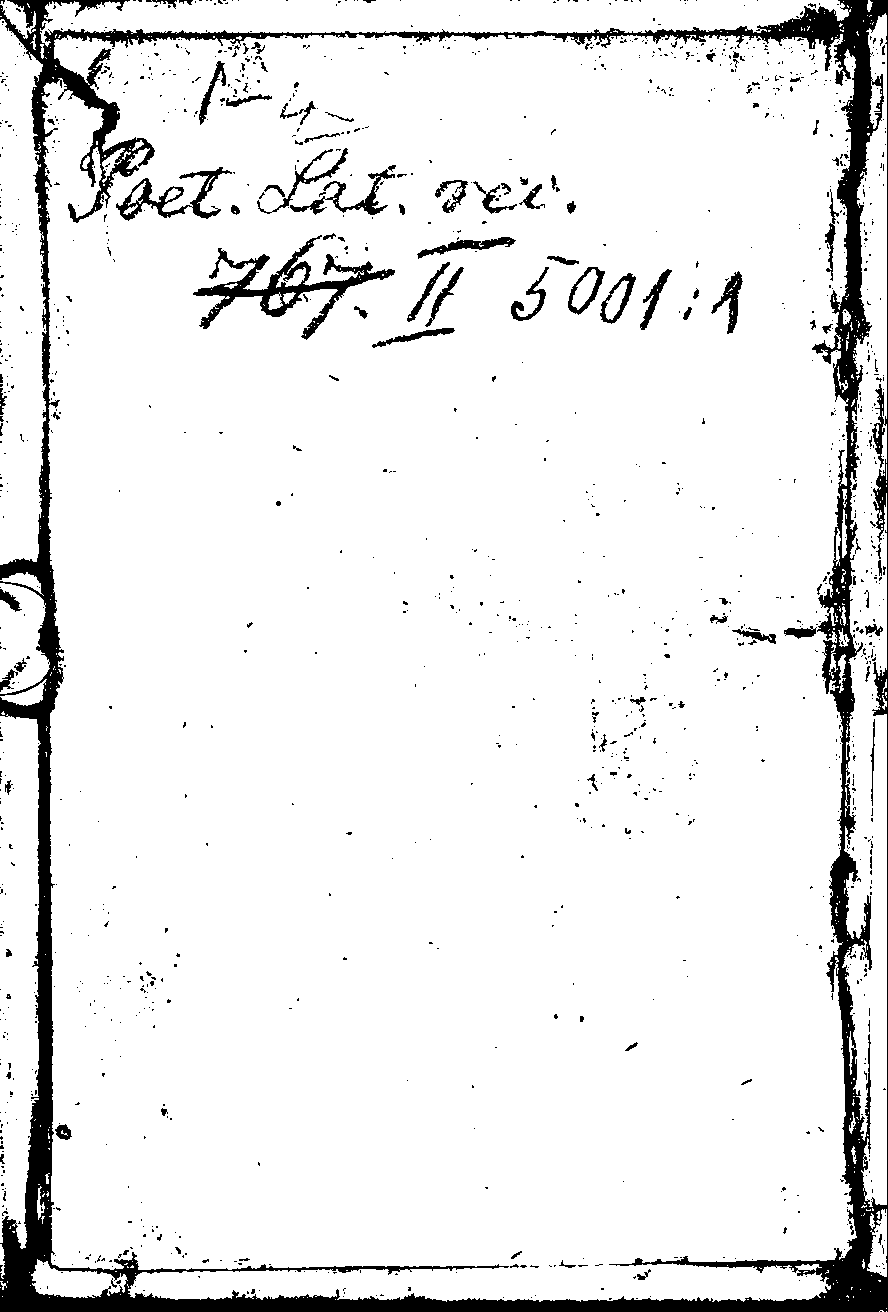 1–4
Poet. Lat. rec.
767. II 5001:1